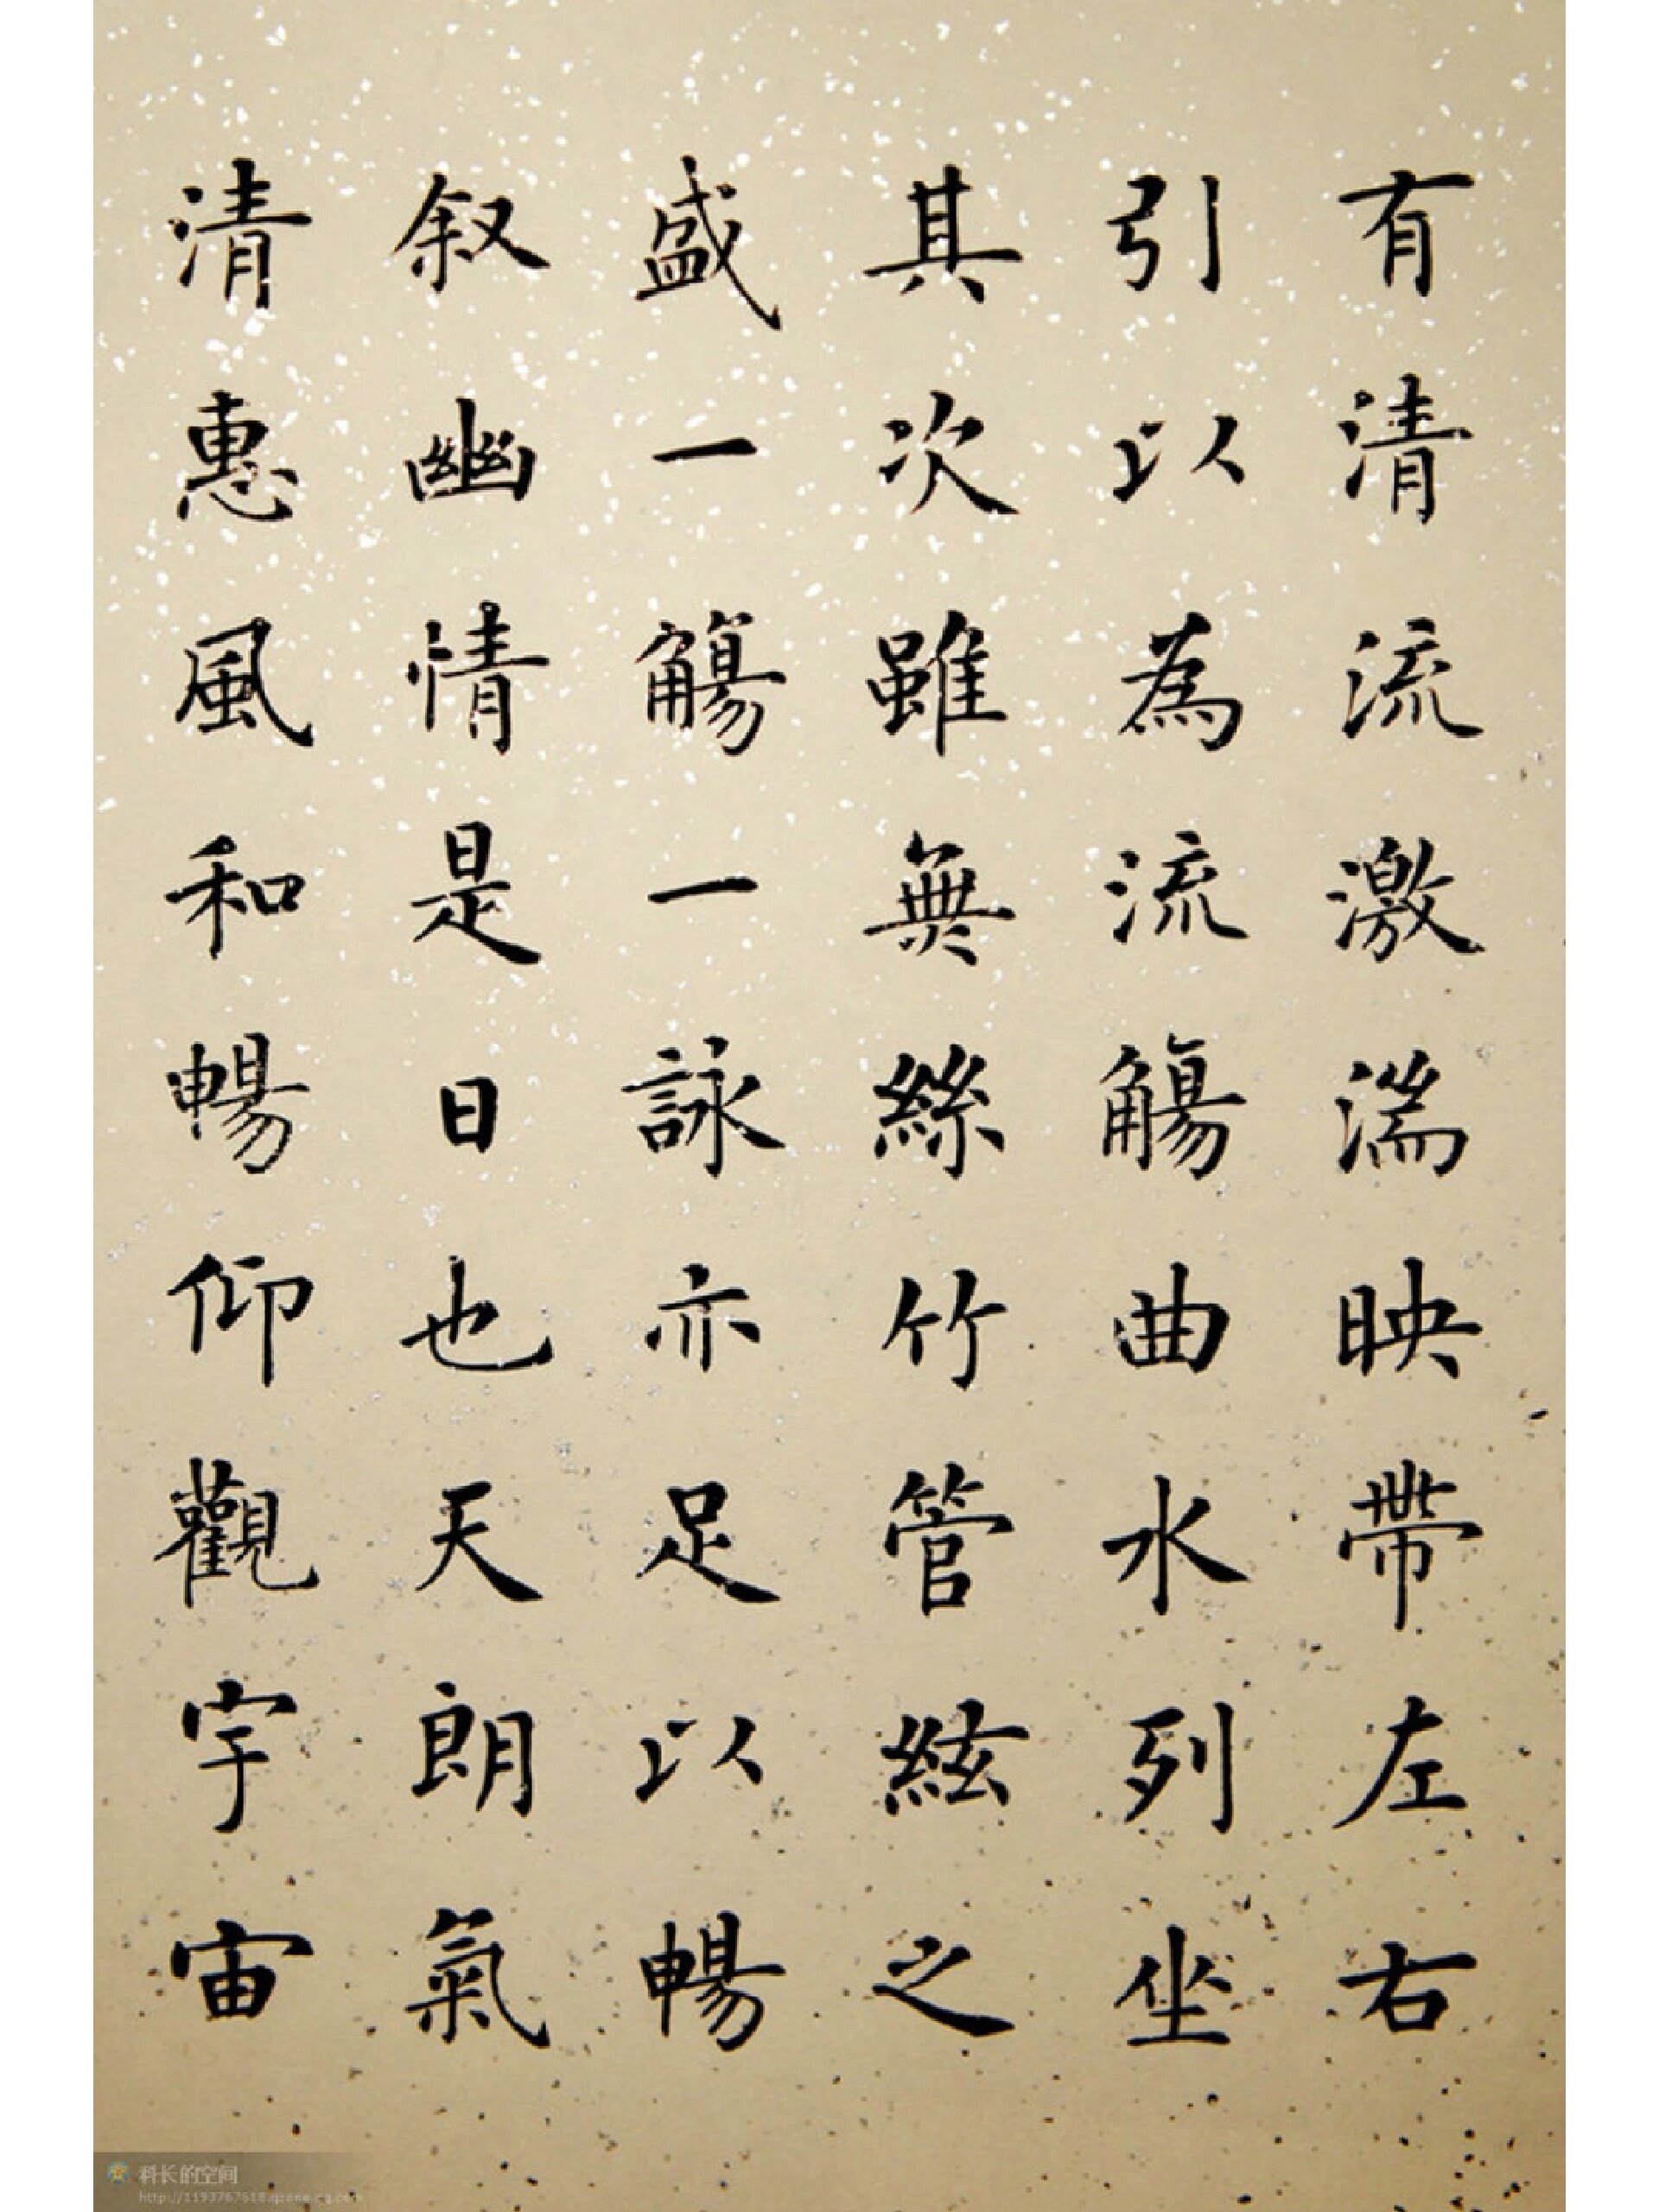 有清流激湍映帶左右
引以為流觴曲水列坐
其次雖無絲竹管絃之
盛一觴一詠亦足以暢
叙幽情是日也天朗氣
清惠風和暢仰觀宇宙
科长的空间
http://1193767518.qzone.qq.com